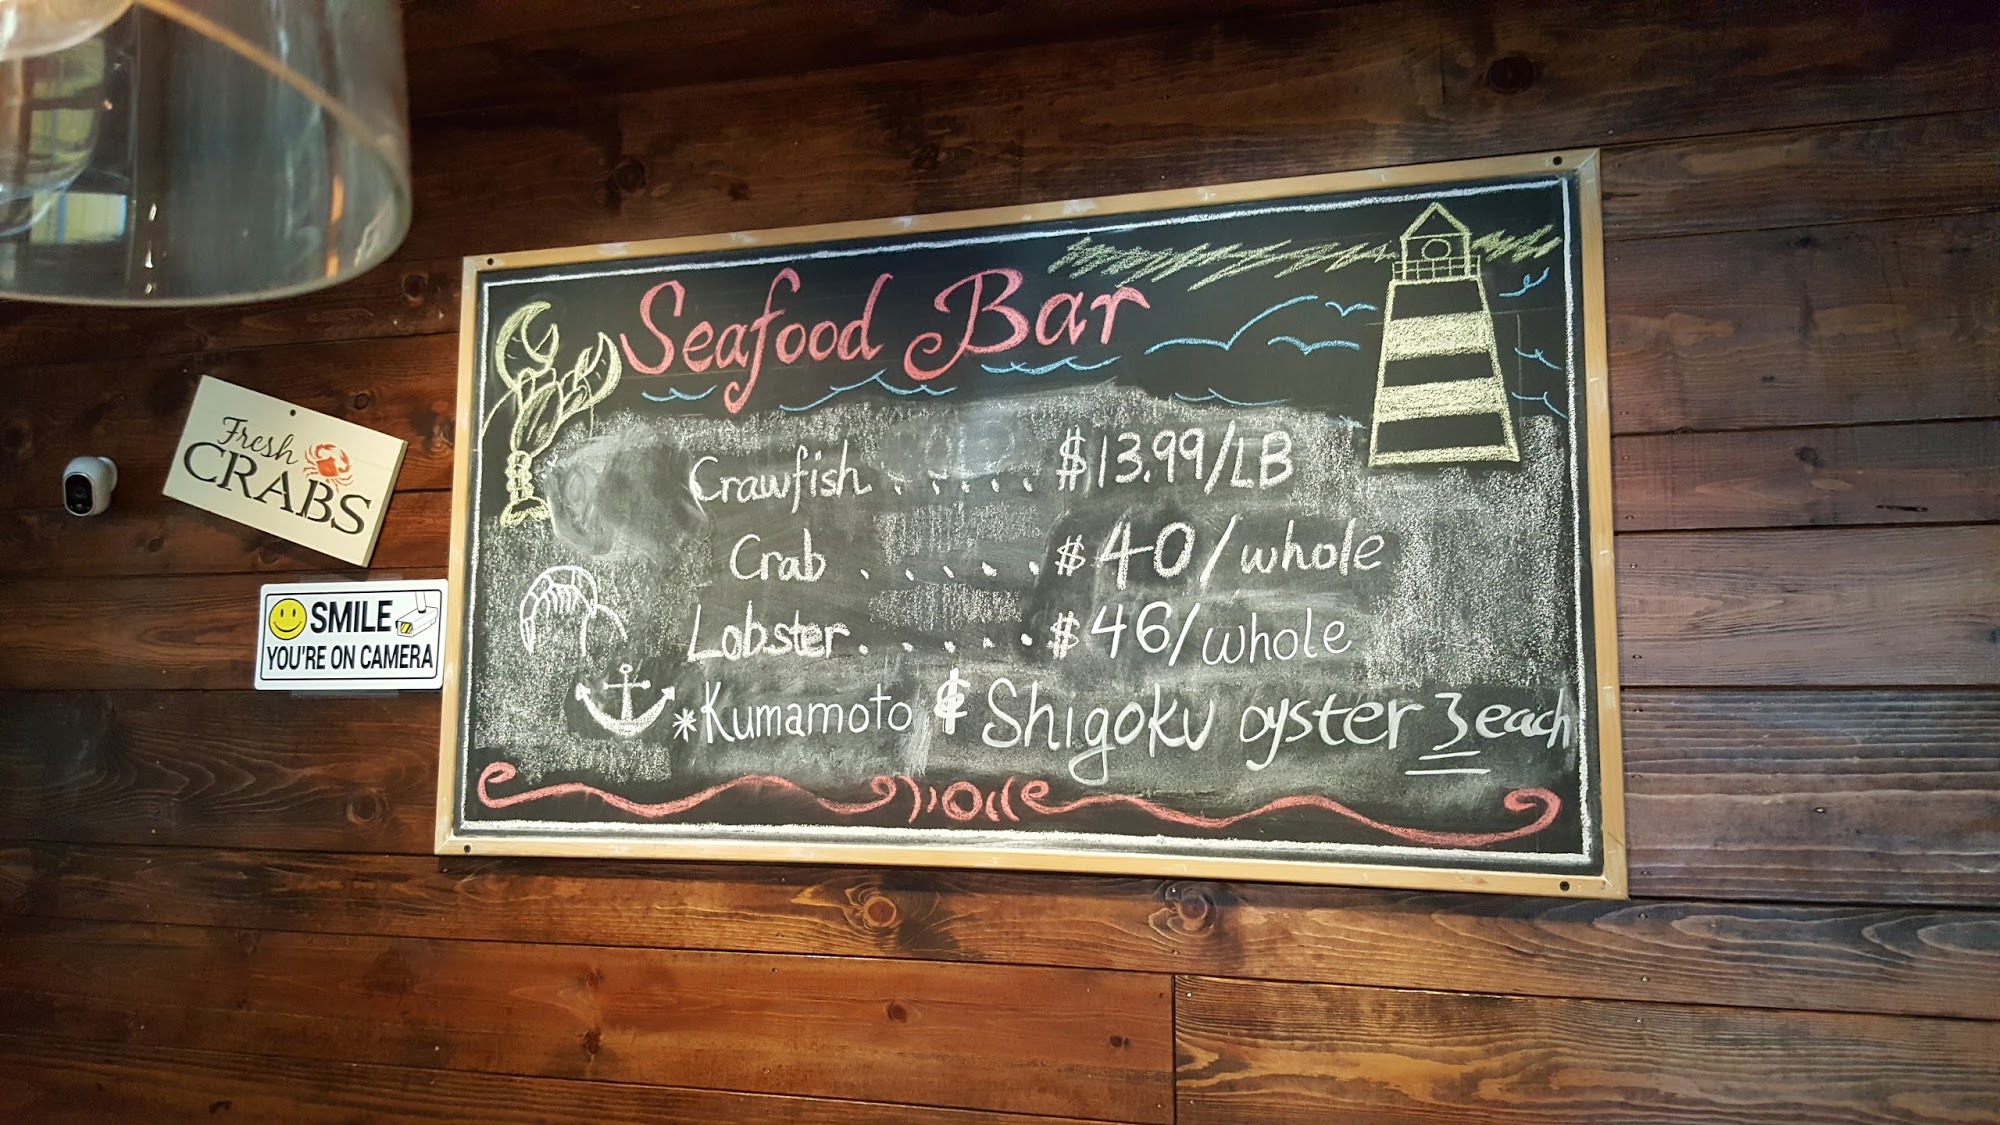 Seafood Bar
Crawfish . . . . . $13.99/LB
Crab . . . . . $40/whole
Lobster . . . . . $46/whole
*Kumamoto & Shigoku oyster 3 each
Fresh
CRABS
SMILE
YOU'RE ON CAMERA